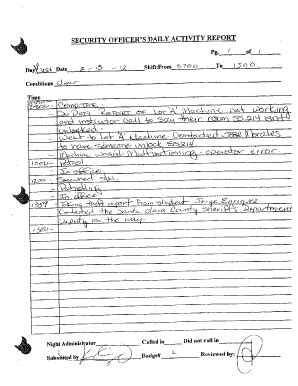 SECURITY OFFICER'S DAILY ACTIVITY REPORT
Pg. 1 of 1
Day Date 2-8-12 Shift:From 0700 To 1500
Conditions Clear
Time
- Computer
- Report of Lot "A" Machine not working
and instructor call to say their room
unlocked.
Went to Lot "A" Machine Contacted Morales
to have someone unlock
- Machine wasn't Malfunctioning, operator error
1000 - Patrol
- In office
1200 - Secured
- Patrolling
- In office
- Taking theft report from student Jorge Enriquez
Contacted the Santa Clara County Sheriff's Department
Deputy on the way.
1500
Night Administrator Called in Did not call in
Submitted by Badge# 2 Reviewed by: